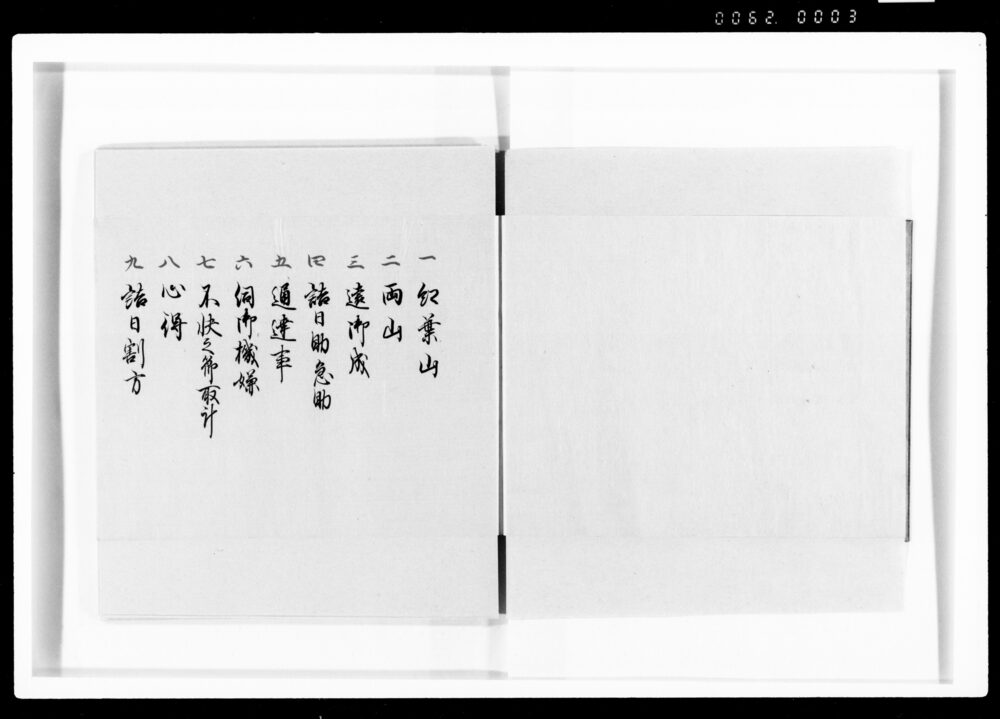 0062. 0003
一 紅葉山
二 両山
三 遠御成
四 詰日助急助
五 通達事
六 伺御機嫌
七 不快之節取計
八 心得
九 詰日割方